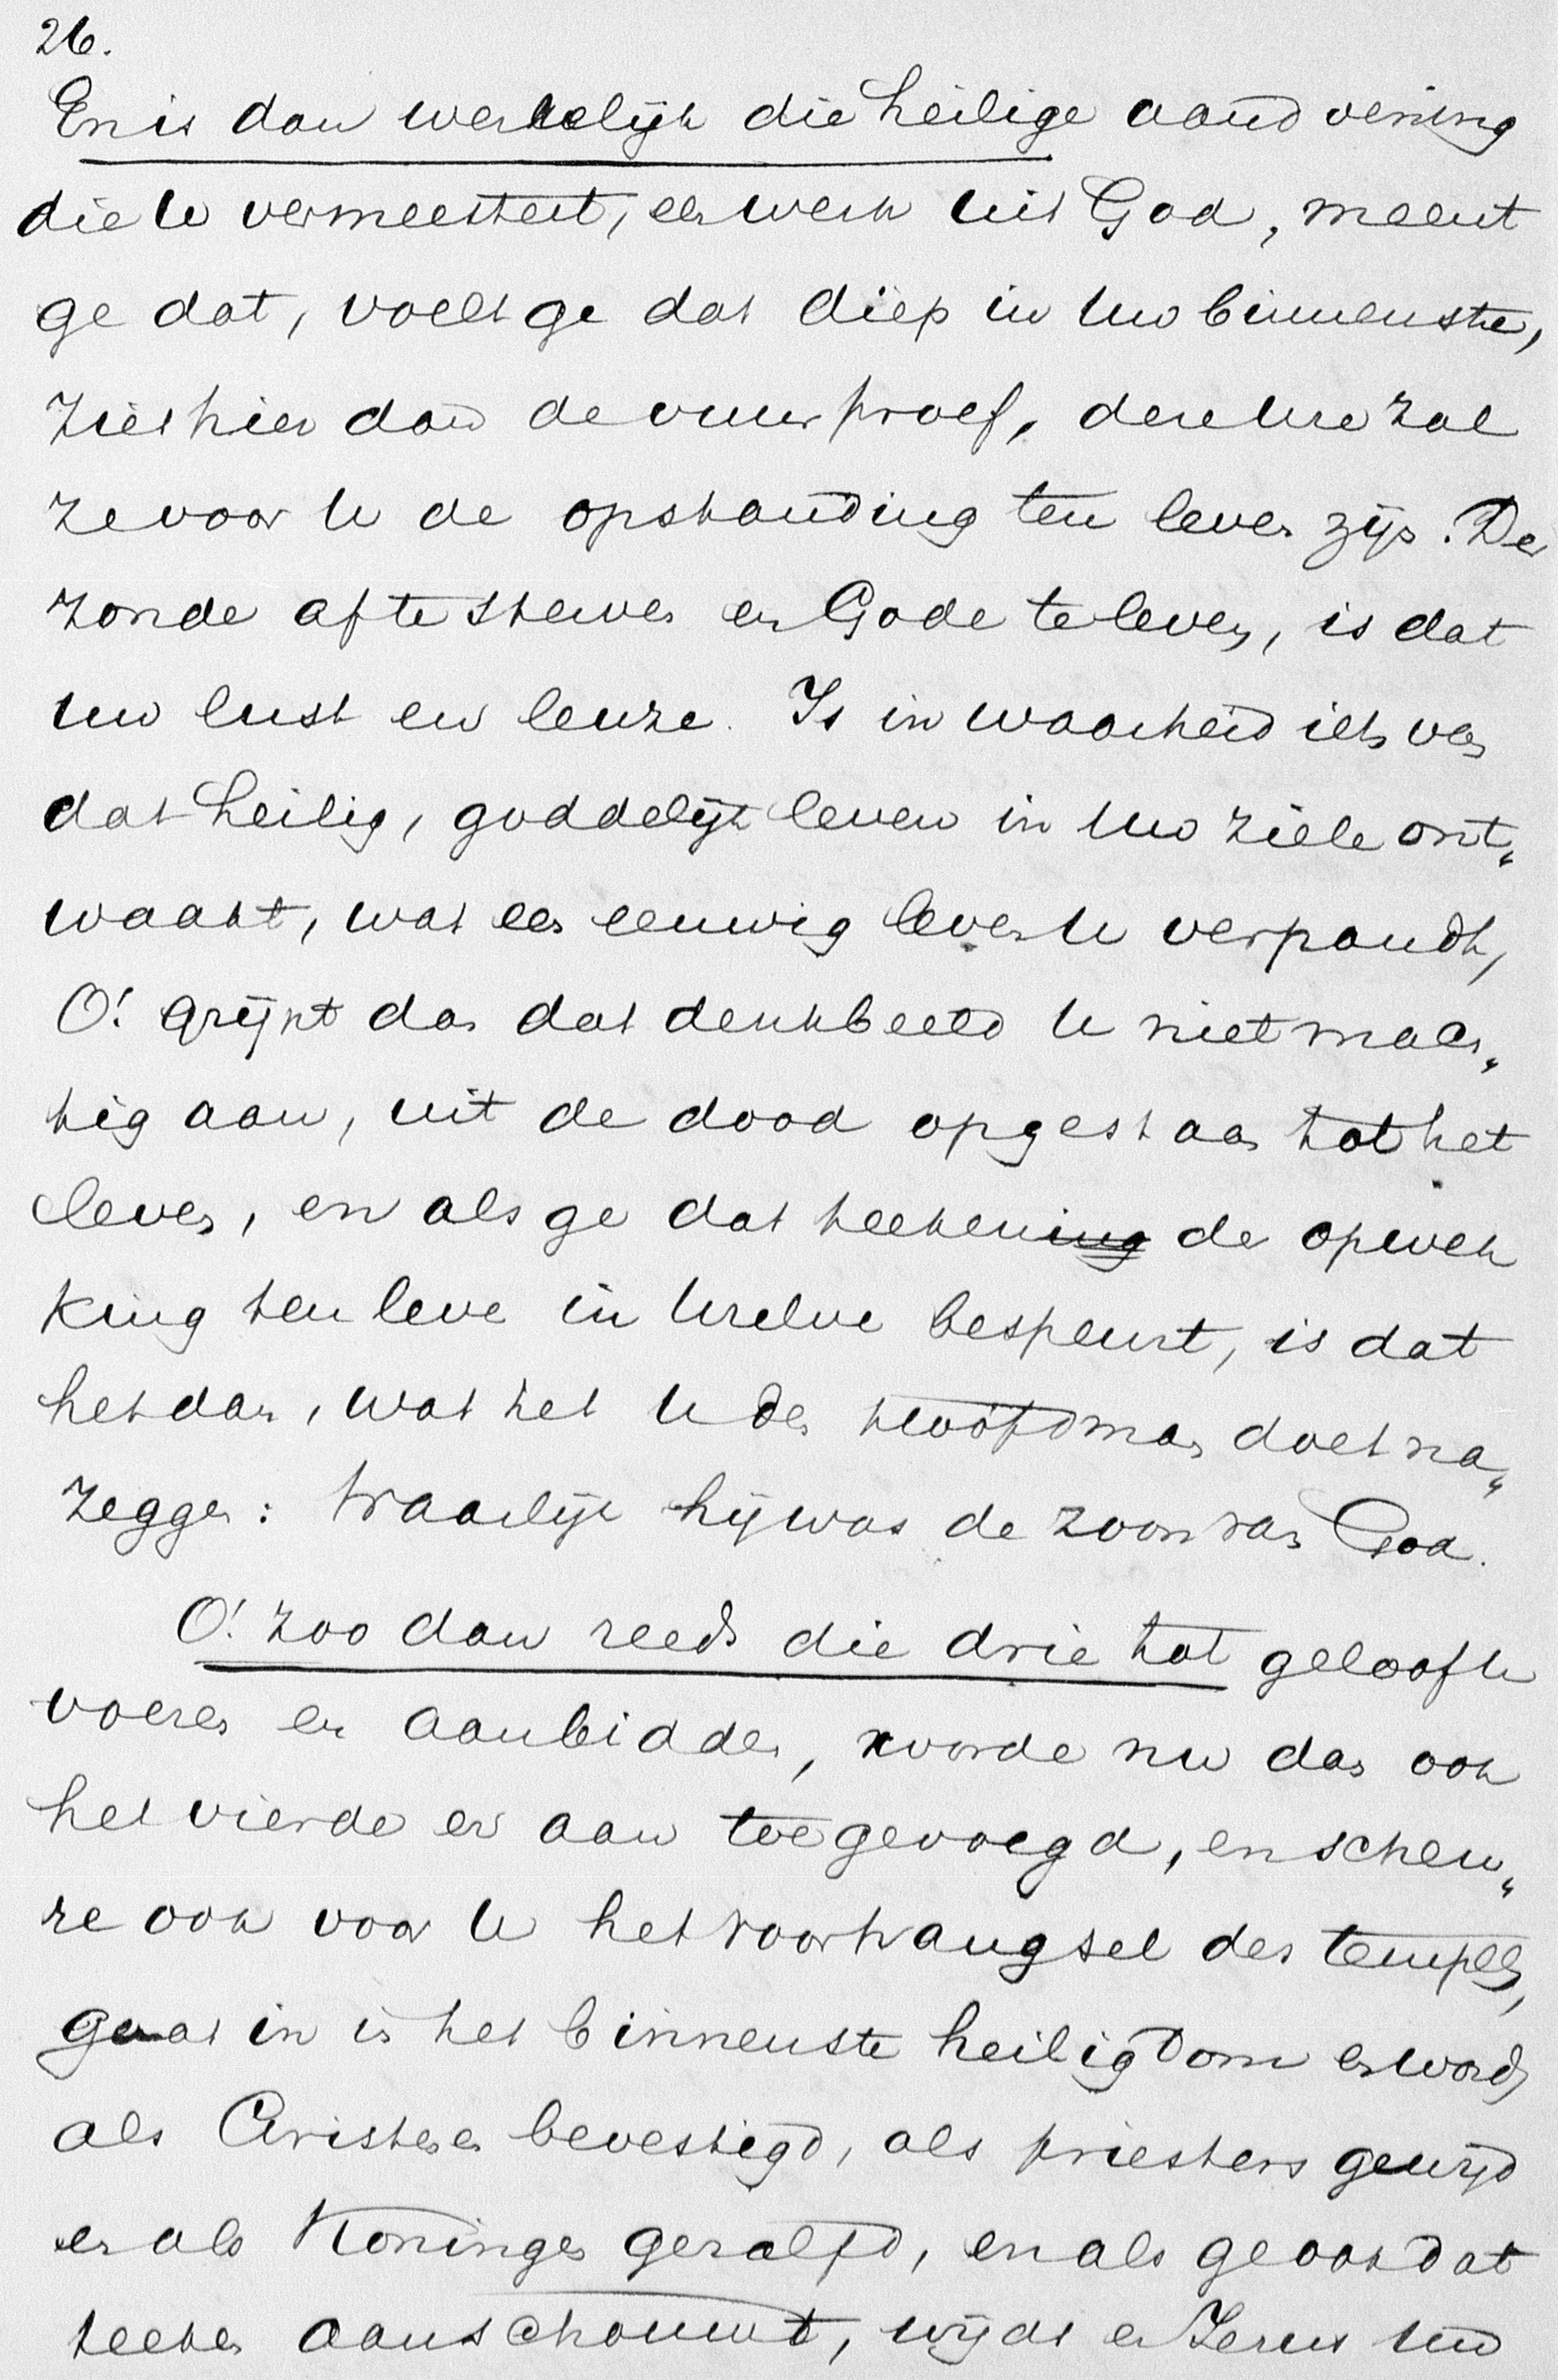 26.
En is dan werkelijk die heilige aandoening
die U vermeestert, een werk uit God, meent
ge dat, voelt ge dat diep in Uw binnenste,
Ziet hier dan de vuurproef, deze Ure zal
ze voor U de opstanding ten leven zijn. Der
zonde af te sterven en Gode te leven, is dat
Uw lust en leuze. Is in waarheid iets van
dat heilig, goddelijk leven in Uw ziele ont„
waakt, wat een eeuwig leven U verpandt,
O! grijpt dan dat denkbeeld U niet mach„
tig aan, uit de dood opgestaan tot het
leven, en als ge dat teeken de opwek
king ten leve in Uzelve bespeurt, is dat
het dan, wat het U den hoofdman doet na„
zeggen: Waarlijk hij was de zoon van God.
O! zoo dan reeds die drie tot geloofte
voeren en aanbidden, worde nu dan ook
het vierde er aan toegevoegd, en scheu„
re ook voor U het voorhangsel des tempels,
gaat in in het binnenste heiligdom en wordt
als Christenen bevestigd, als priesters gewijd
en als Koningen gezalfd, en als ge ook dat
teeken aanschouwt, wijdt en Jezus Uw